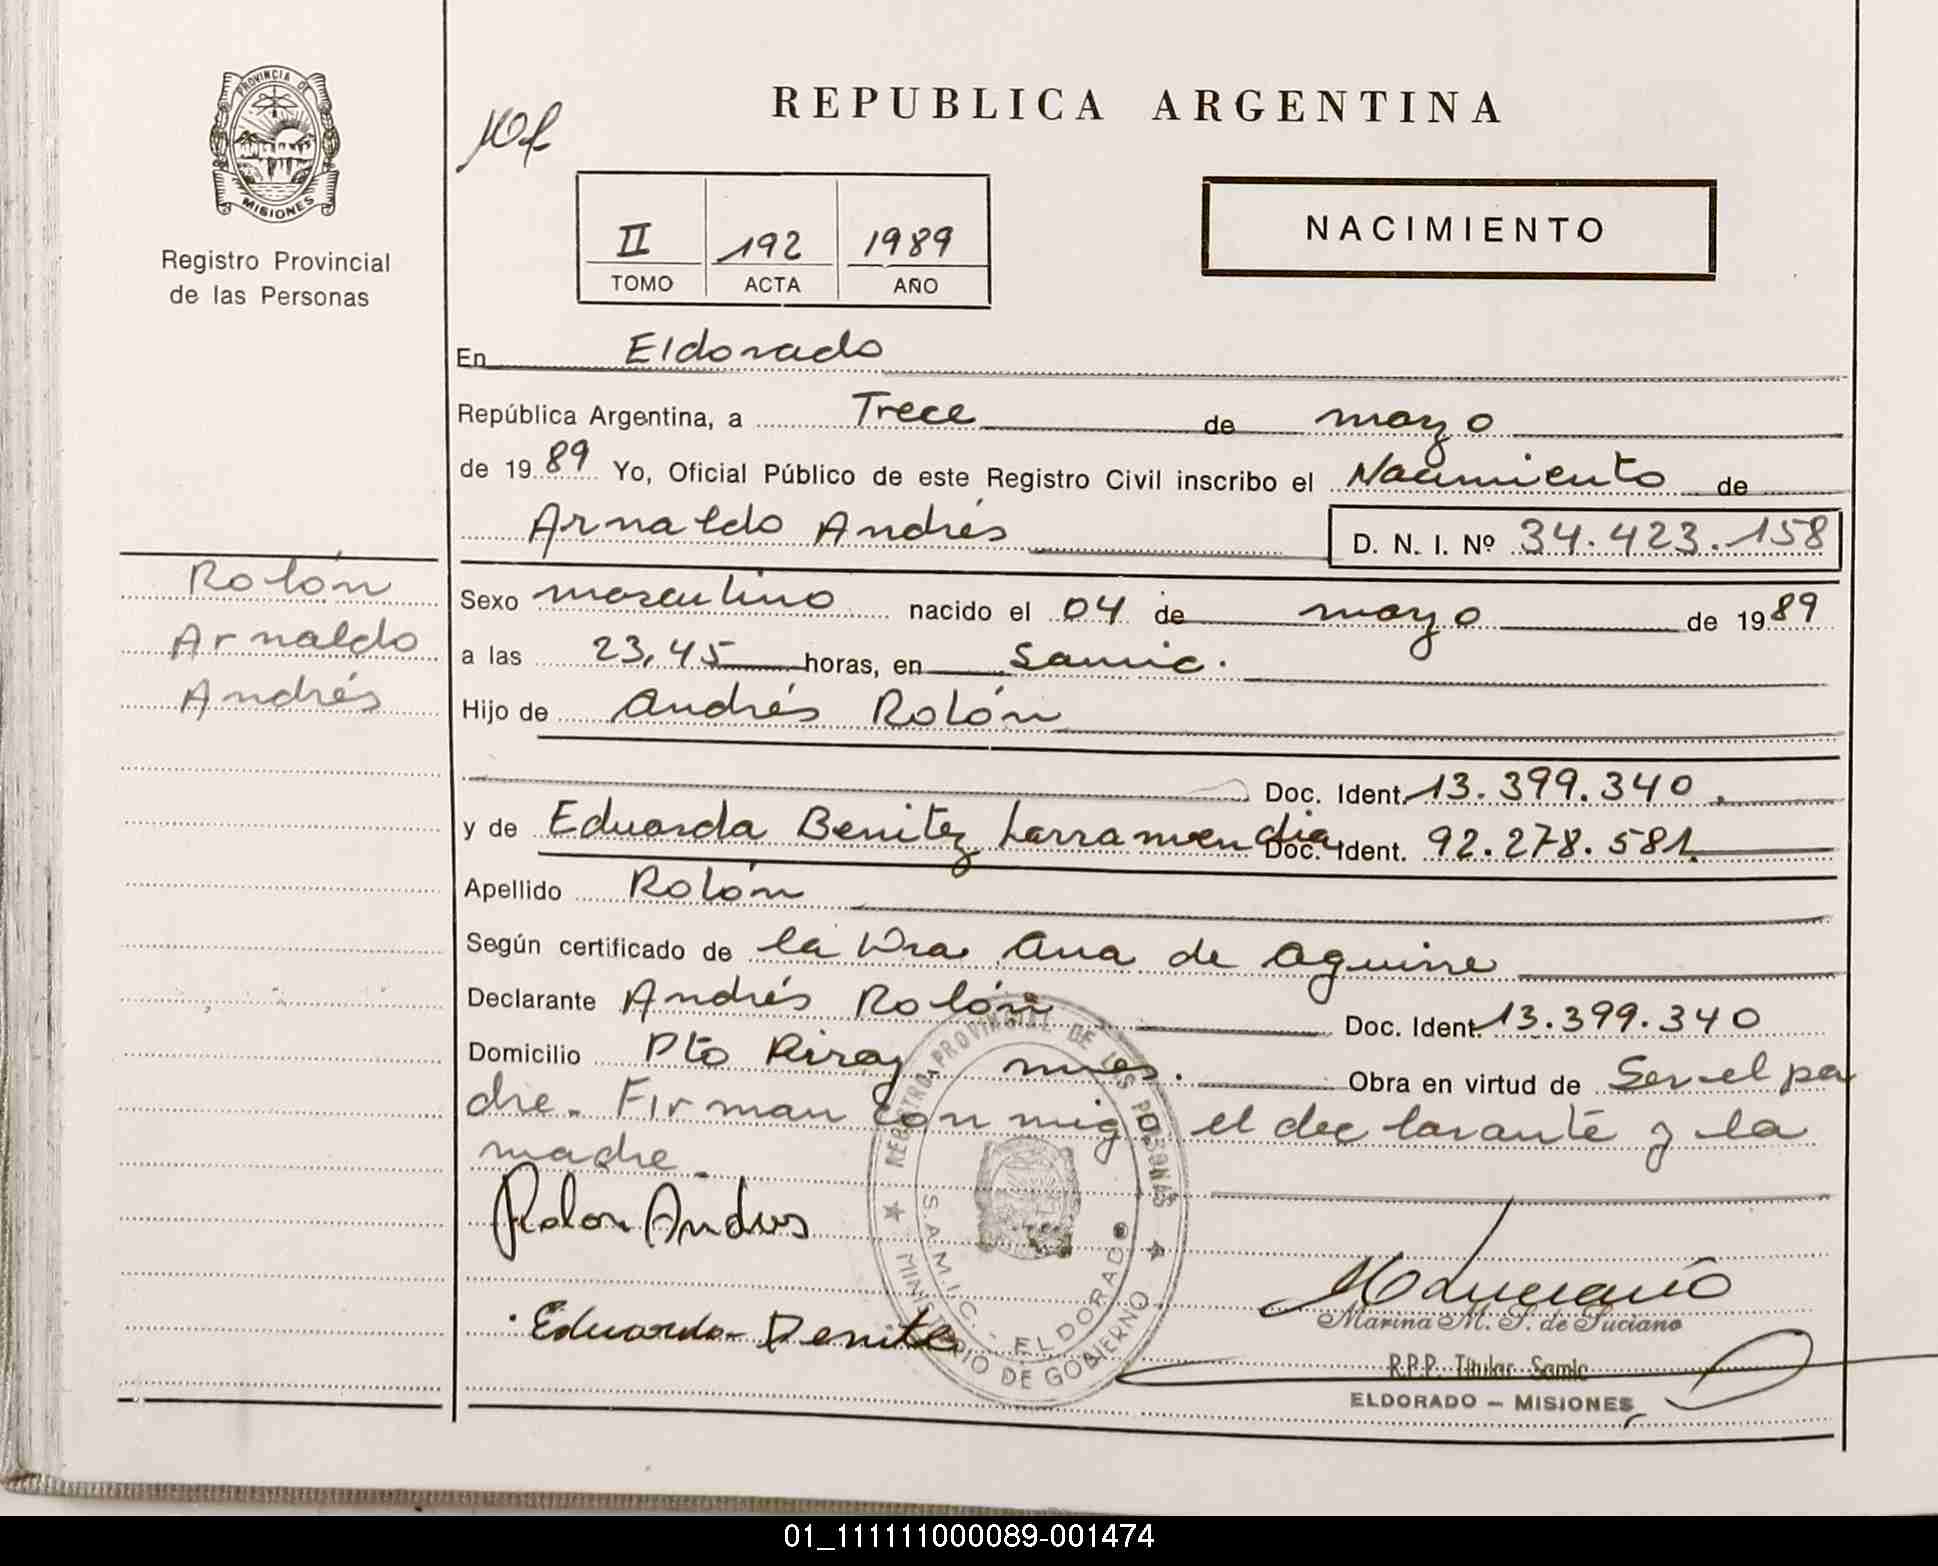 PROVINCIA DE
MISIONES
Registro Provincial
de las Personas
REPUBLICA ARGENTINA
II 192 1989
TOMO ACTA AÑO
NACIMIENTO
En Eldorado
República Argentina, a Trece de mayo
de 1989 Yo, Oficial Público de este Registro Civil inscribo el Nacimiento de
Arnaldo Andrés D. N. I. Nº 34.423.158
Rolón
Arnaldo
Andrés
Sexo masculino nacido el 04 de mayo de 1989
a las 23,45 horas, en Samic.
Hijo de Andrés Rolón
Doc. Ident. 13.399.340.
y de Eduarda Benitez Larramendia Doc. Ident. 92.278.581.
Apellido Rolón
Según certificado de la Dra Ana de Aguirre
Declarante Andrés Rolón Doc. Ident. 13.399.340
Domicilio Pto Piray mnes. Obra en virtud de Ser el pa
dre. Firman conmigo el declarante y la
madre.
Rolon Andres
Eduarda Benitez
REGISTRO PROVINCIAL DE LAS PERSONAS
S.A.M.I.C. - ELDORADO
MINISTERIO DE GOBIERNO
Marina M. de Luciano
R.P.P. Titular Samic
ELDORADO - MISIONES
01_111111000089-001474